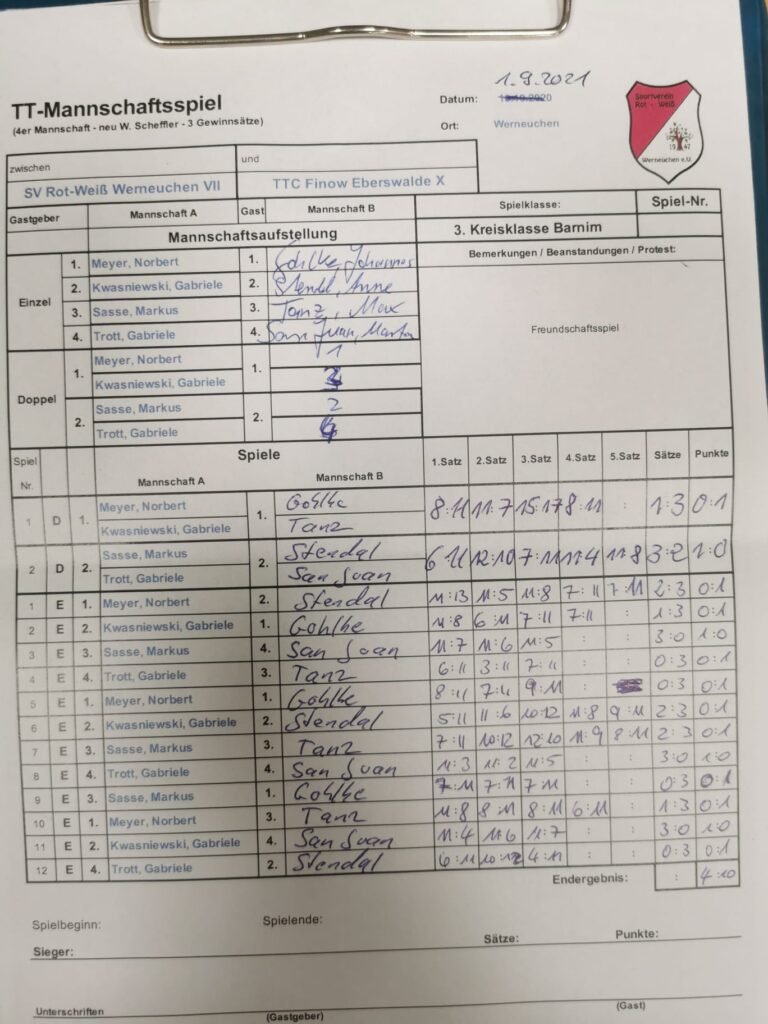 TT-Mannschaftsspiel
(4er Mannschaft - neu W. Scheffler - 3 Gewinnsätze)
Datum: 1.9.2021
Ort: Werneuchen
Sportverein
Rot - Weiß
1947
Werneuchen e.V.
zwischen und
SV Rot-Weiß Werneuchen VII TTC Finow Eberswalde X
Gastgeber Mannschaft A Gast Mannschaft B Spielklasse: Spiel-Nr.
Mannschaftsaufstellung 3. Kreisklasse Barnim
Bemerkungen / Beanstandungen / Protest:
Freundschaftsspiel
Einzel
1. Meyer, Norbert 1. Gohlke, Johannes
2. Kwasniewski, Gabriele 2. Stendal, Anne
3. Sasse, Markus 3. Tanz, Max
4. Trott, Gabriele 4. San Juan, Martin
Doppel
1. Meyer, Norbert 1. 1
Kwasniewski, Gabriele
2. Sasse, Markus 2. 2
Trott, Gabriele
Spiel Nr. Spiele
Mannschaft A Mannschaft B 1.Satz 2.Satz 3.Satz 4.Satz 5.Satz Sätze Punkte
1 D 1. Meyer, Norbert 1. Gohlke 8:11 11:7 15:17 8:11 : 1:3 0:1
Kwasniewski, Gabriele Tanz
2 D 2. Sasse, Markus 2. Stendal 6:11 12:10 7:11 11:4 11:8 3:2 1:0
Trott, Gabriele San Juan
1 E 1. Meyer, Norbert 2. Stendal 11:13 11:5 11:8 7:11 7:11 2:3 0:1
2 E 2. Kwasniewski, Gabriele 1. Gohlke 11:8 6:11 7:11 7:11 1:3 0:1
3 E 3. Sasse, Markus 4. San Juan 11:7 11:6 11:5 : : 3:0 1:0
4 E 4. Trott, Gabriele 3. Tanz 6:11 3:11 7:11 : : 0:3 0:1
5 E 1. Meyer, Norbert 1. Gohlke 8:11 7:11 9:11 : 0:3 0:1
6 E 2. Kwasniewski, Gabriele 2. Stendal 5:11 11:6 10:12 11:8 9:11 2:3 0:1
7 E 3. Sasse, Markus 3. Tanz 7:11 10:12 12:10 11:9 8:11 2:3 0:1
8 E 4. Trott, Gabriele 4. San Juan 11:3 11:2 11:5 3:0 1:0
9 E 3. Sasse, Markus 1. Gohlke 7:11 7:11 7:11 0:3 0:1
10 E 1. Meyer, Norbert 3. Tanz 11:8 8:11 8:11 6:11 : 1:3 0:1
11 E 2. Kwasniewski, Gabriele 4. San Juan 11:4 11:6 11:7 : : 3:0 1:0
12 E 4. Trott, Gabriele 2. Stendal 6:11 10:12 4:11 : : 0:3 0:1
Endergebnis: : 4:10
Spielbeginn: Spielende:
Sieger: Sätze: Punkte:
Unterschriften (Gastgeber) (Gast)